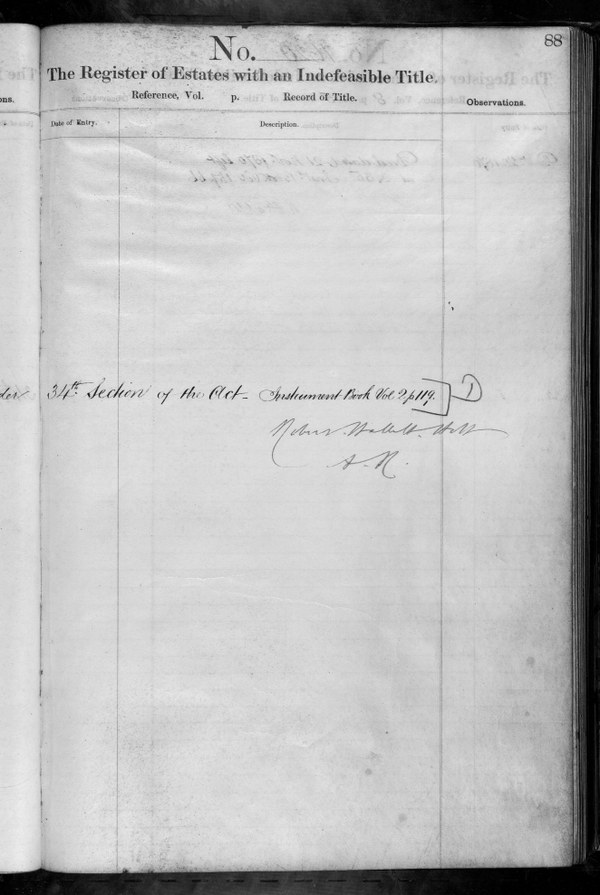 88
No.
The Register of Estates with an Indefeasible Title.
Reference, Vol. p. Record of Title.
Observations.
ons.
Date of Entry.
Description.
34th Section of the Act - Instrument Book Vol 2 p 119. D
Robert Hott
A. R.